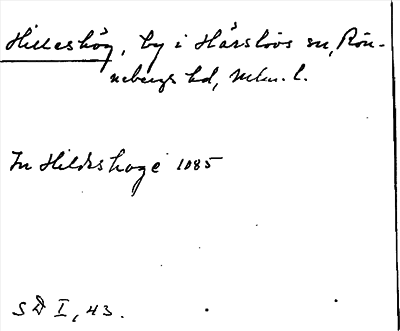 Hilleshög, by i Härslövs sn, Rön-
nebergs hd, Mlm. l.
In Hildeshoge 1085
SD I, 43.